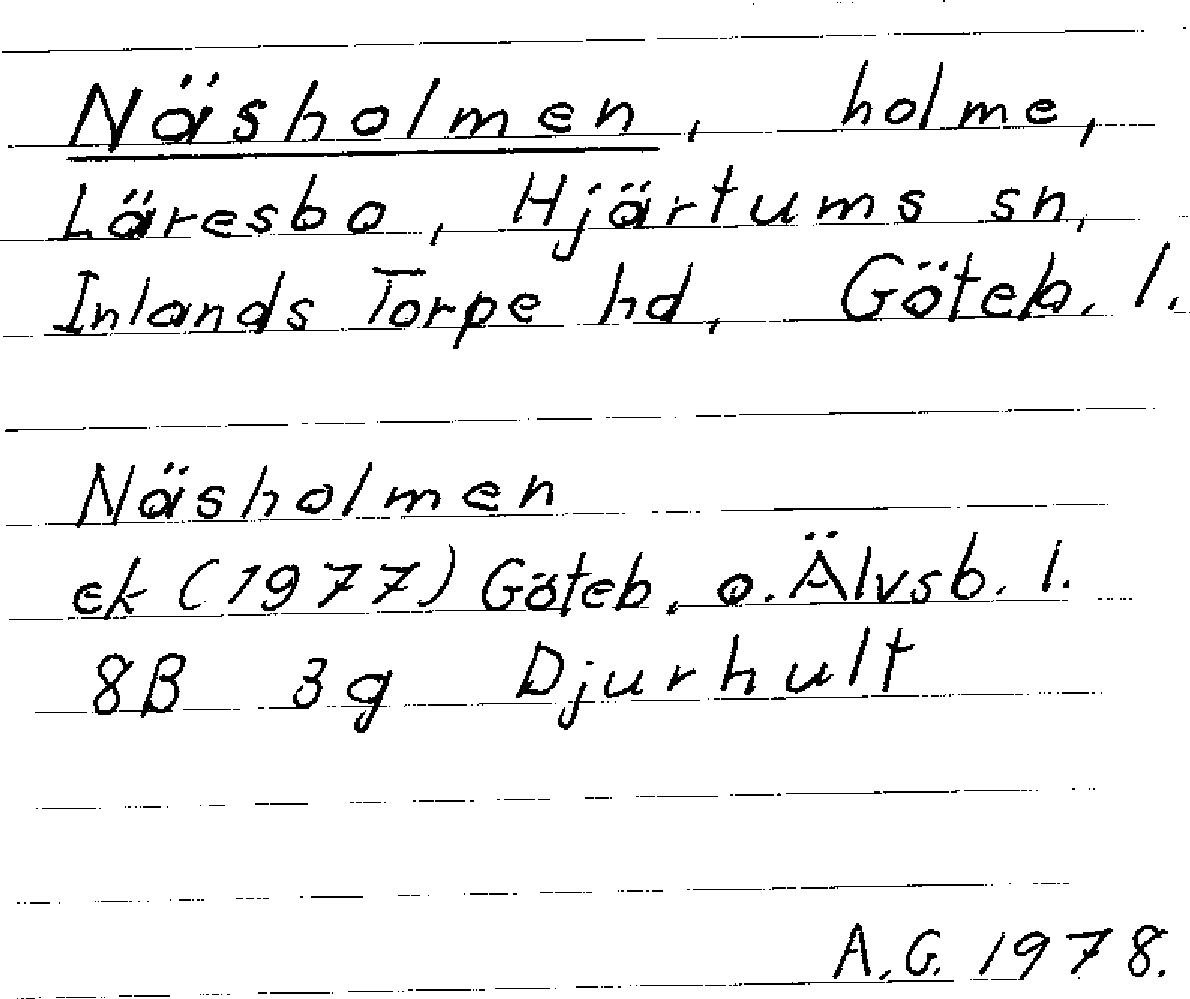 Näsholmen, holme,
Läresbo, Hjärtums sn,
Inlands Torpe hd, Göteb. l.
Näsholmen
ek (1977) Göteb. o. Älvsb. l.
8B 3g Djurhult
A.G. 1978.